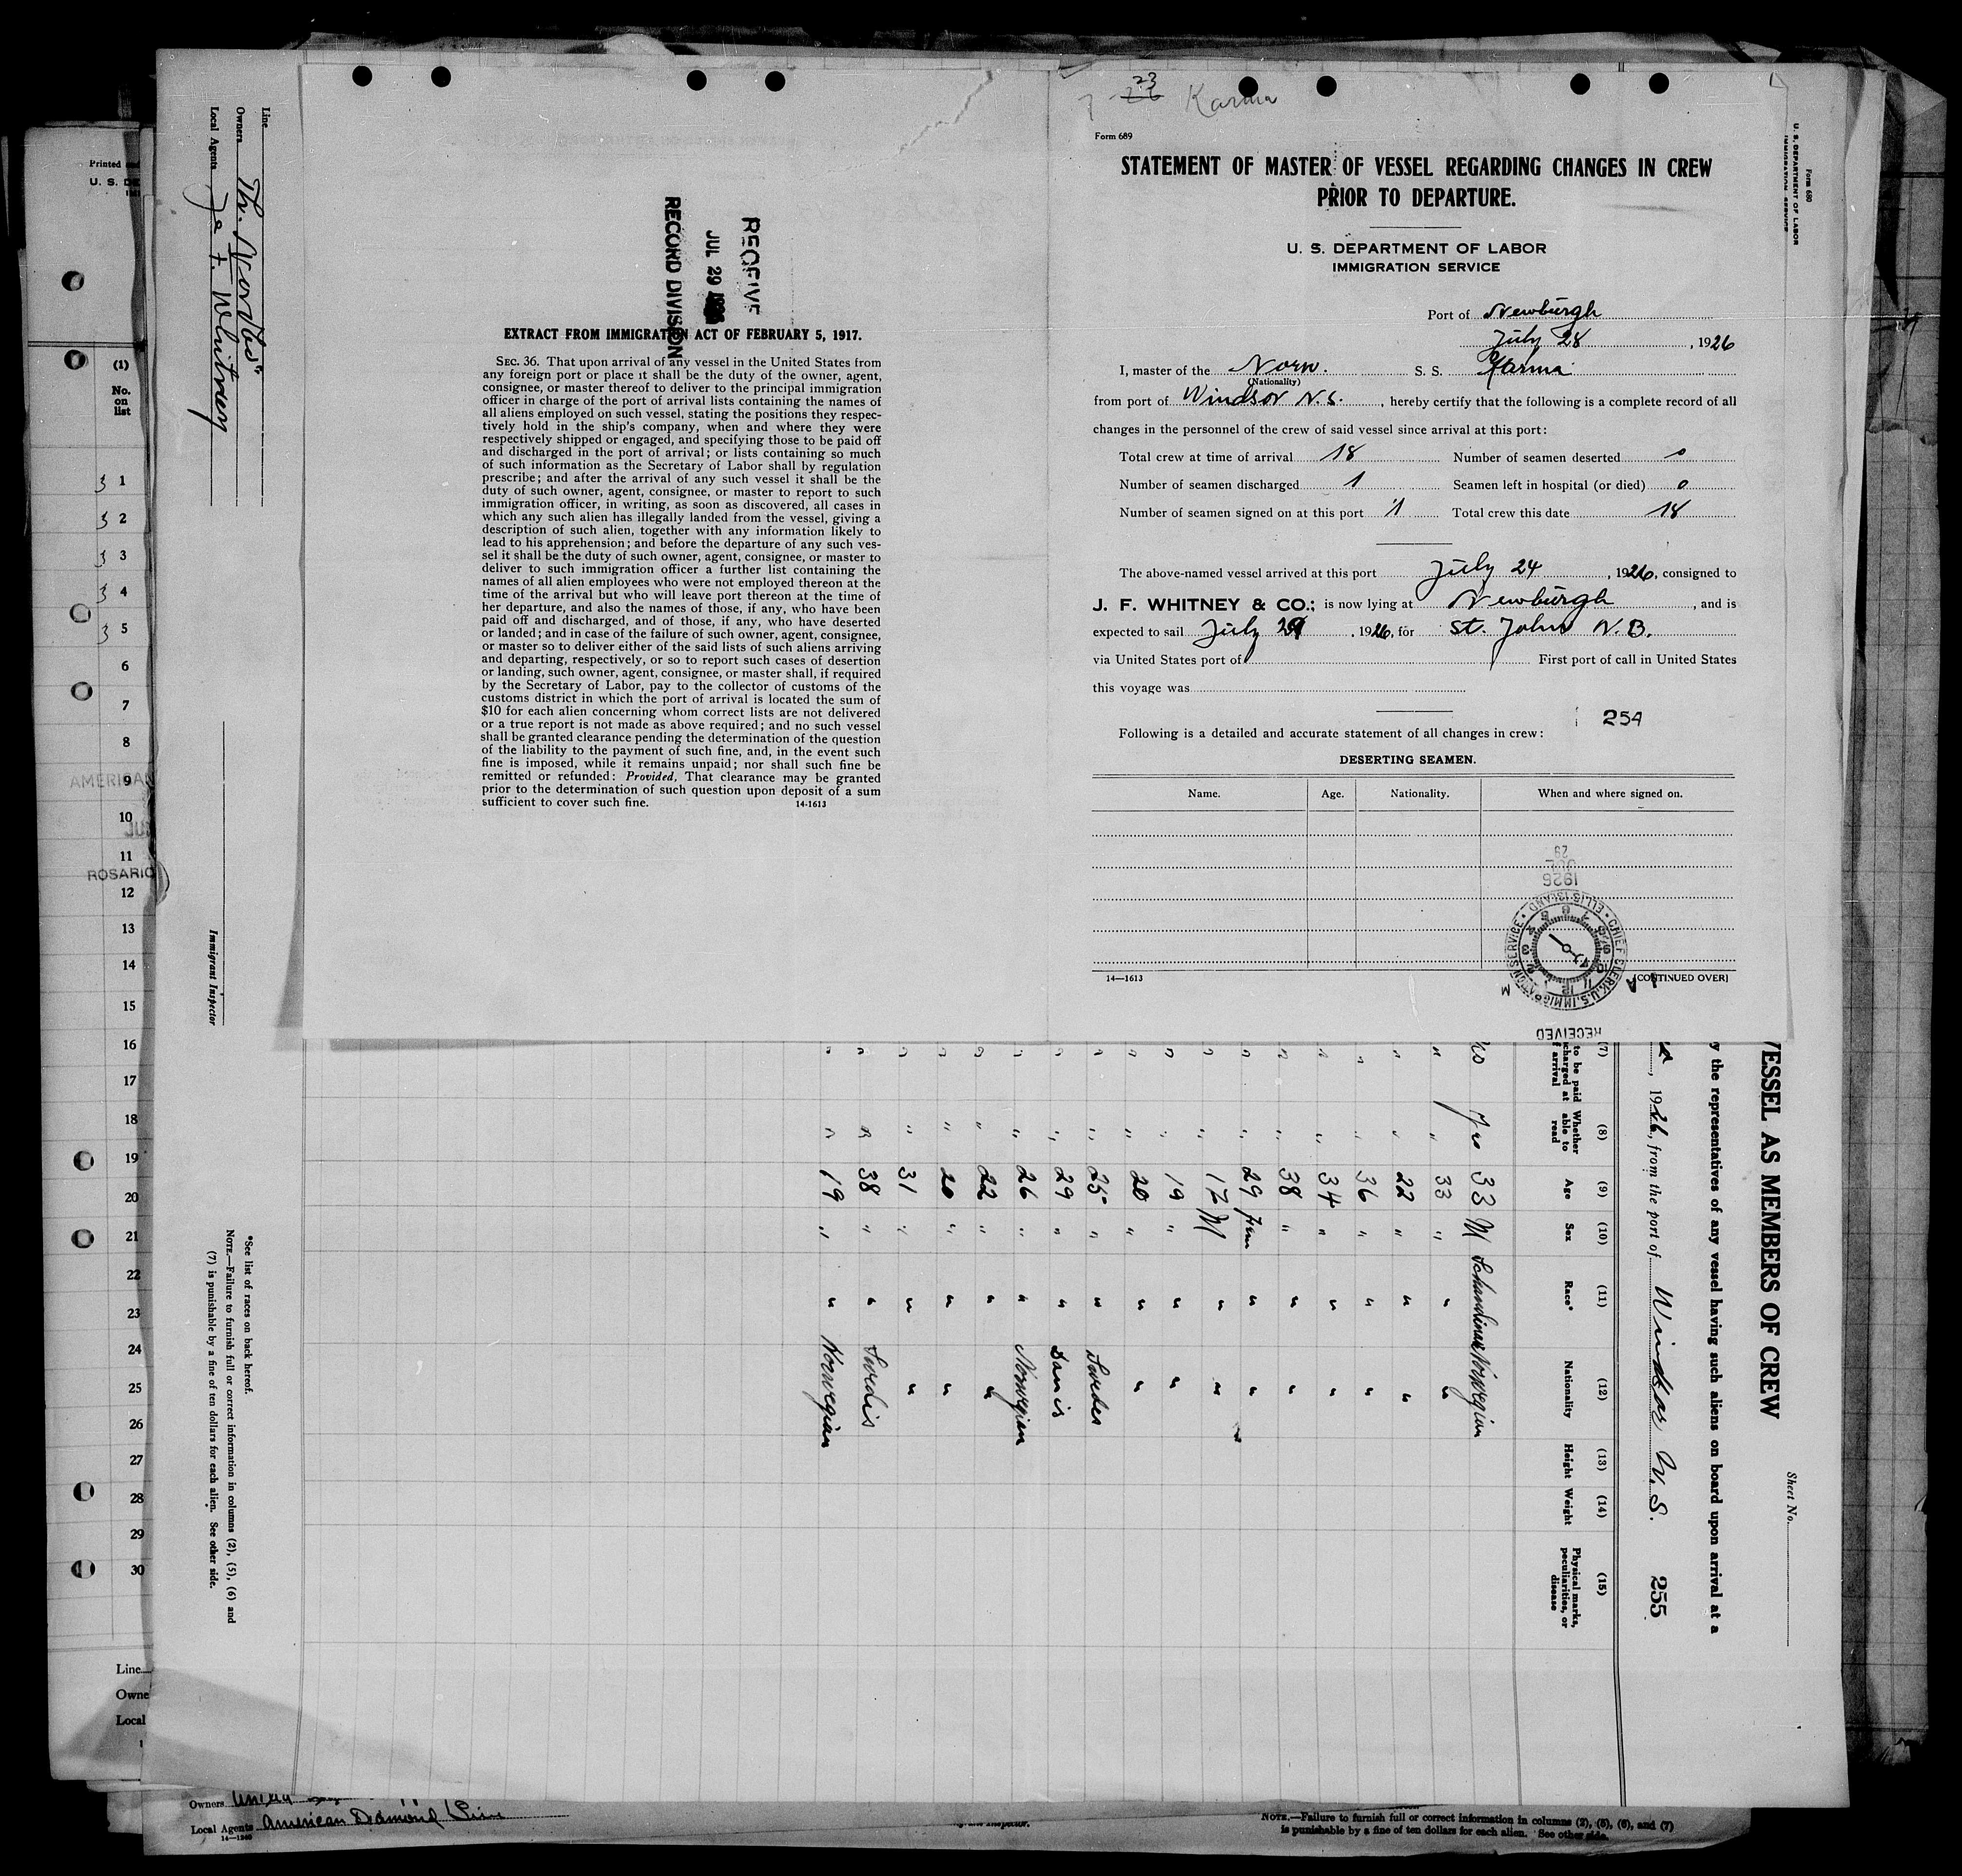 7-23 Karma
Form 689
STATEMENT OF MASTER OF VESSEL REGARDING CHANGES IN CREW
PRIOR TO DEPARTURE.
U. S. DEPARTMENT OF LABOR
IMMIGRATION SERVICE
Port of Newburgh
July 28, 1926
I, master of the Norw. S. S. Karma
(Nationality)
from port of Windsor N.S., hereby certify that the following is a complete record of all
changes in the personnel of the crew of said vessel since arrival at this port:
Total crew at time of arrival 18 Number of seamen deserted 0
Number of seamen discharged 1 Seamen left in hospital (or died) 0
Number of seamen signed on at this port 1 Total crew this date 18
The above-named vessel arrived at this port July 24, 1926, consigned to
J. F. WHITNEY & CO.; is now lying at Newburgh, and is
expected to sail July 29, 1926, for St. John N.B.
via United States port of First port of call in United States
this voyage was
254
Following is a detailed and accurate statement of all changes in crew:
DESERTING SEAMEN.
Name. Age. Nationality. When and where signed on.
14—1613 [CONTINUED OVER]
RECEIVED
JUL 29 1926
CHIEF CLERK, U.S. IMMIGRATION SERVICE • ELLIS ISLAND •
RECEIVE
JUL 29
RECORD DIVISON
EXTRACT FROM IMMIGRATION ACT OF FEBRUARY 5, 1917.
SEC. 36. That upon arrival of any vessel in the United States from
any foreign port or place it shall be the duty of the owner, agent,
consignee, or master thereof to deliver to the principal immigration
officer in charge of the port of arrival lists containing the names of
all aliens employed on such vessel, stating the positions they respec-
tively hold in the ship's company, when and where they were
respectively shipped or engaged, and specifying those to be paid off
and discharged in the port of arrival; or lists containing so much
of such information as the Secretary of Labor shall by regulation
prescribe; and after the arrival of any such vessel it shall be the
duty of such owner, agent, consignee, or master to report to such
immigration officer, in writing, as soon as discovered, all cases in
which any such alien has illegally landed from the vessel, giving a
description of such alien, together with any information likely to
lead to his apprehension; and before the departure of any such ves-
sel it shall be the duty of such owner, agent, consignee, or master to
deliver to such immigration officer a further list containing the
names of all alien employees who were not employed thereon at the
time of the arrival but who will leave port thereon at the time of
her departure, and also the names of those, if any, who have been
paid off and discharged, and of those, if any, who have deserted
or landed; and in case of the failure of such owner, agent, consignee,
or master so to deliver either of the said lists of such aliens arriving
and departing, respectively, or so to report such cases of desertion
or landing, such owner, agent, consignee, or master shall, if required
by the Secretary of Labor, pay to the collector of customs of the
customs district in which the port of arrival is located the sum of
$10 for each alien concerning whom correct lists are not delivered
or a true report is not made as above required; and no such vessel
shall be granted clearance pending the determination of the question
of the liability to the payment of such fine, and, in the event such
fine is imposed, while it remains unpaid; nor shall such fine be
remitted or refunded: Provided, That clearance may be granted
prior to the determination of such question upon deposit of a sum
sufficient to cover such fine. 14-1613
Form 680
U. S. DEPARTMENT OF LABOR
IMMIGRATION SERVICE
Sheet No.
VESSEL AS MEMBERS OF CREW
y the representatives of any vessel having such aliens on board upon arrival at a
, 1926, from the port of Windsor N.S. 255
(7) (8) (9) (10) (11) (12) (13) (14) (15)
to be paid charged at f arrival
Whether able to read
Age
Sex
Race*
Nationality
Height
Weight
Physical marks, peculiarities, or disease
no Yes 33 M Schandinav Norwegian
" " 33 " " "
" " 22 " " "
" " 36 " " "
" " 34 " " "
" " 38 " " "
" " 29 fem " "
" " 17 M " "
" " 19 " " "
" " 20 " " "
" " 25 " " Swedes
" " 29 " " Danis
" " 26 " " Norwegian
" " 22 " " "
" " 20 " " "
" " 31 " " "
" " 38 " " Swedis
" " 19 " " Norwegian
Line
Owners
Local Agents J. F. Whitney
Immigrant Inspector
*See list of races on back hereof.
NOTE.—Failure to furnish full or correct information in columns (2), (5), (6) and
(7) is punishable by a fine of ten dollars for each alien. See other side.
Printed
U. S. DE
(1)
No.
on
list
1
2
3
4
5
6
7
8
9
10
11
12
13
14
15
16
17
18
19
20
21
22
23
24
25
26
27
28
29
30
AMERICAN
ROSARIO
Line
Owne
Local
Owners
Local Agents American Diamond Line
NOTE.—Failure to furnish full or correct information in columns (2), (5), (6), and (7)
is punishable by a fine of ten dollars for each alien. See other side.